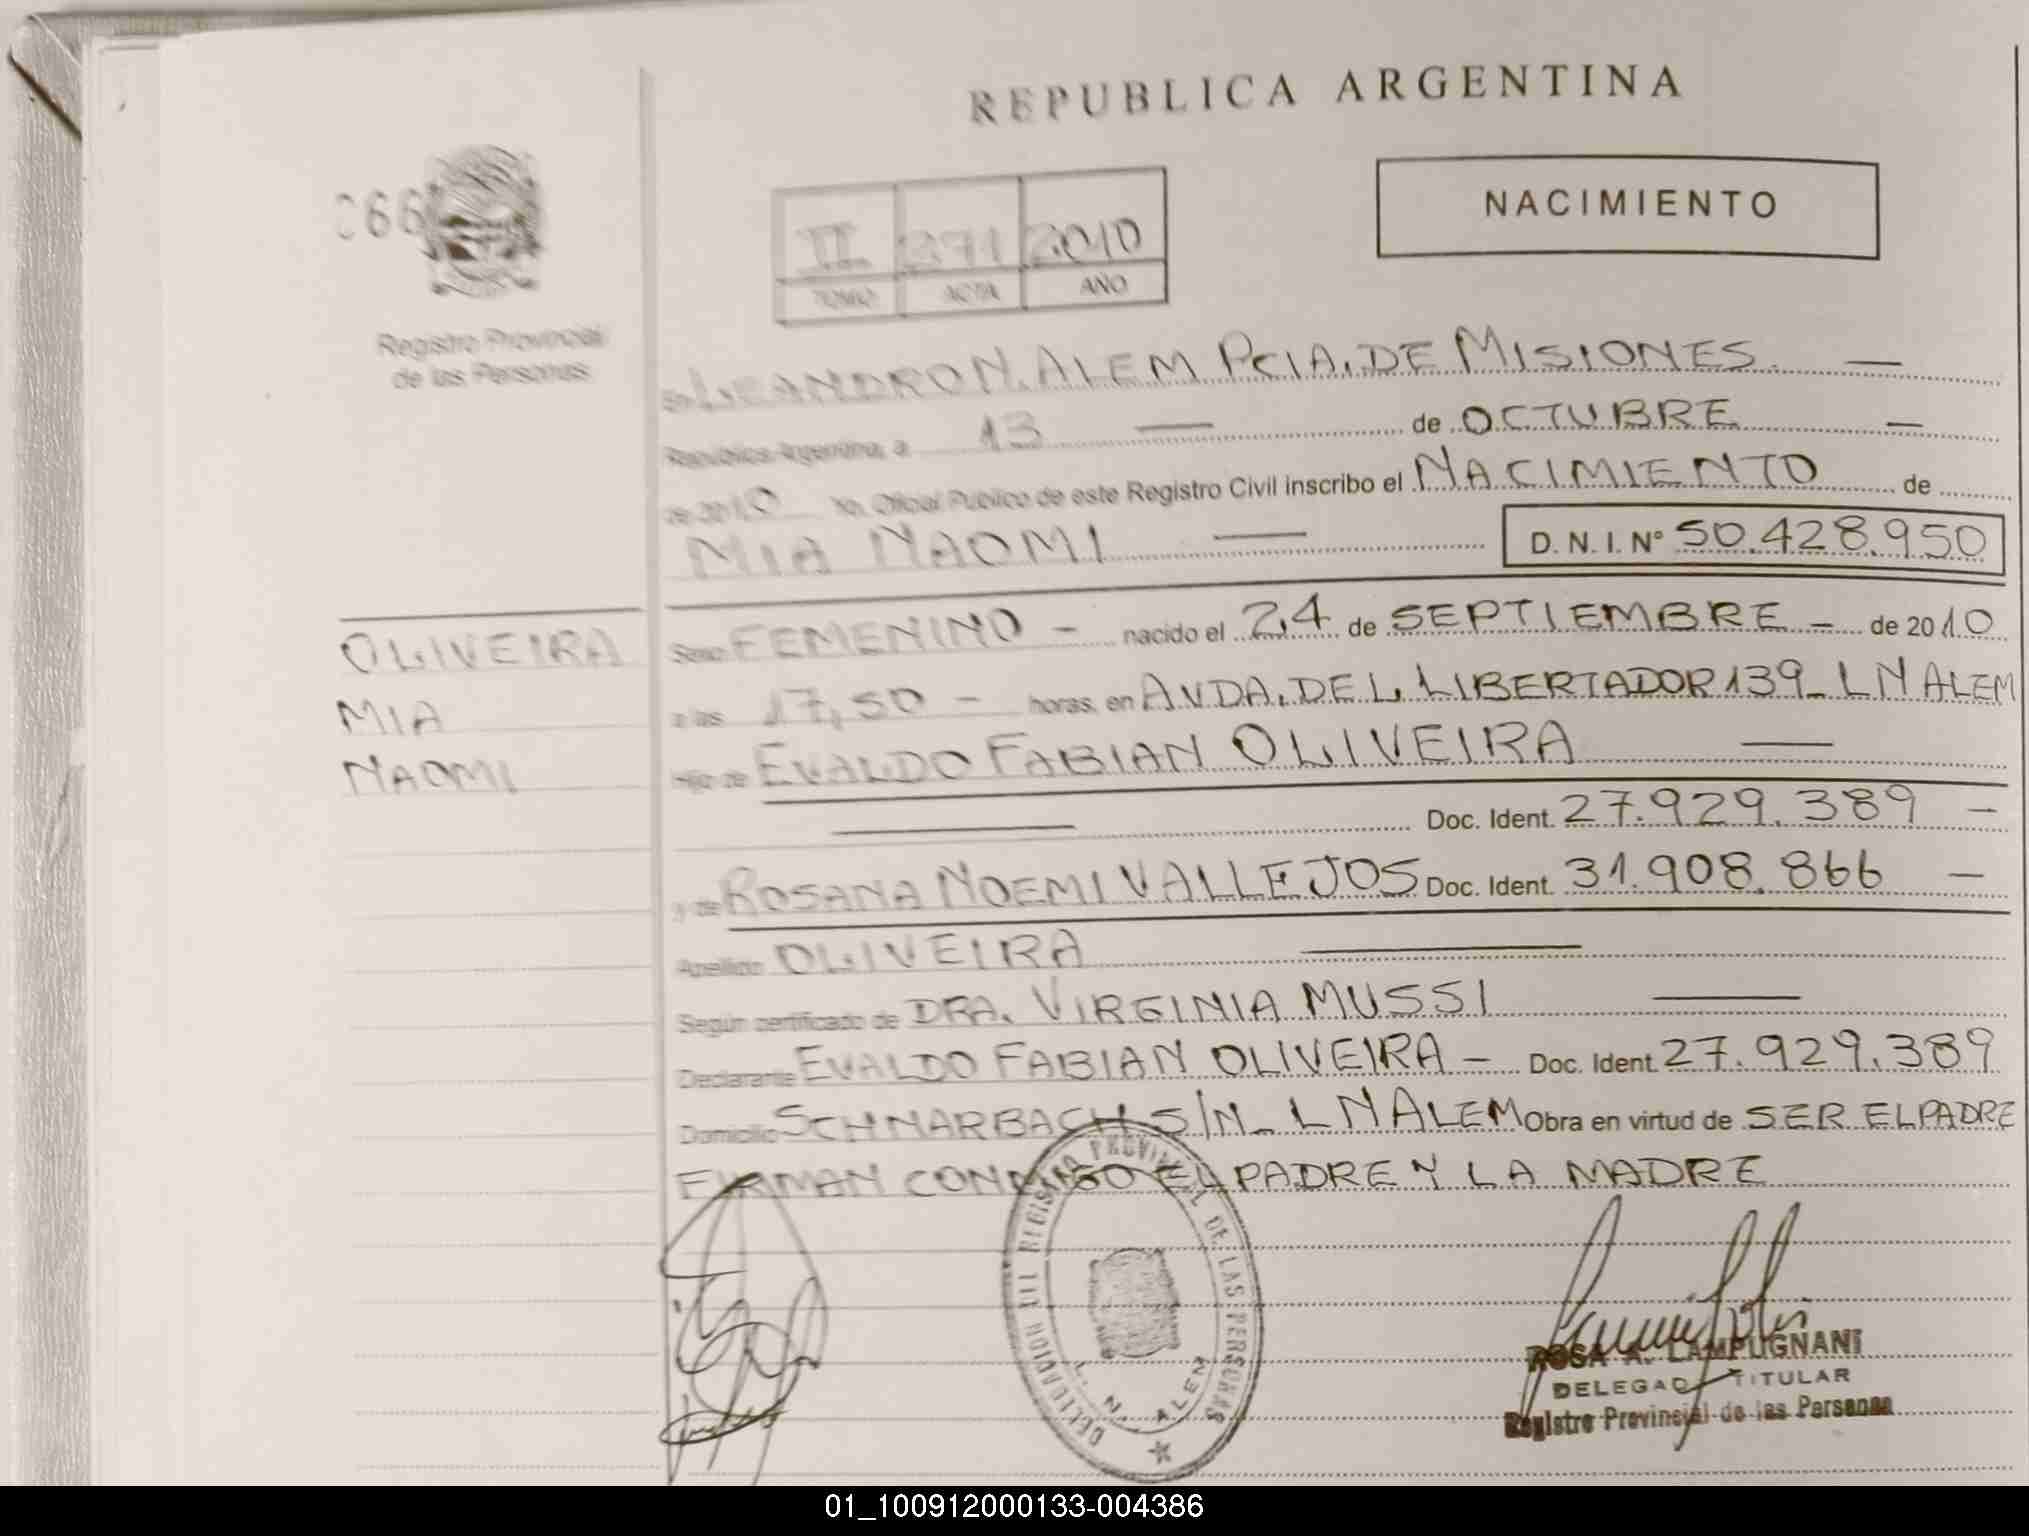 REPUBLICA ARGENTINA
NACIMIENTO
066
II 271 2010
TOMO ACTA AÑO
Registro Provincial
de las Personas
En LEANDRO N. ALEM PCIA. DE MISIONES. —
República Argentina, a 13 — de OCTUBRE —
de 2010 Yo, Oficial Publico de este Registro Civil inscribo el NACIMIENTO de
MIA NAOMI — D. N. I. N° 50.428.950
OLIVEIRA
MIA
NAOMI
Sexo FEMENINO - nacido el 24 de SEPTIEMBRE - de 2010
a las 17,50 - horas, en AVDA. DEL LIBERTADOR 139_ L N ALEM
Hijo de EVALDO FABIAN OLIVEIRA —
— Doc. Ident. 27.929.389 -
y de ROSANA NOEMI VALLEJOS Doc. Ident. 31.908.866 —
Apellido OLIVEIRA —
Según certificado de DRA. VIRGINIA MUSSI —
Declarante EVALDO FABIAN OLIVEIRA - Doc. Ident. 27.929.389
Domicilio SCHNARBACH S/N_ L N ALEM Obra en virtud de SER EL PADRE
FIRMAN CONMIGO EL PADRE Y LA MADRE
DELEGACION DEL REGISTRO PROVINCIAL DE LAS PERSONAS
L. N. ALEM
ROSA A. LAMPUGNANI
DELEGADA TITULAR
Registro Provincial de las Personas
01_100912000133-004386